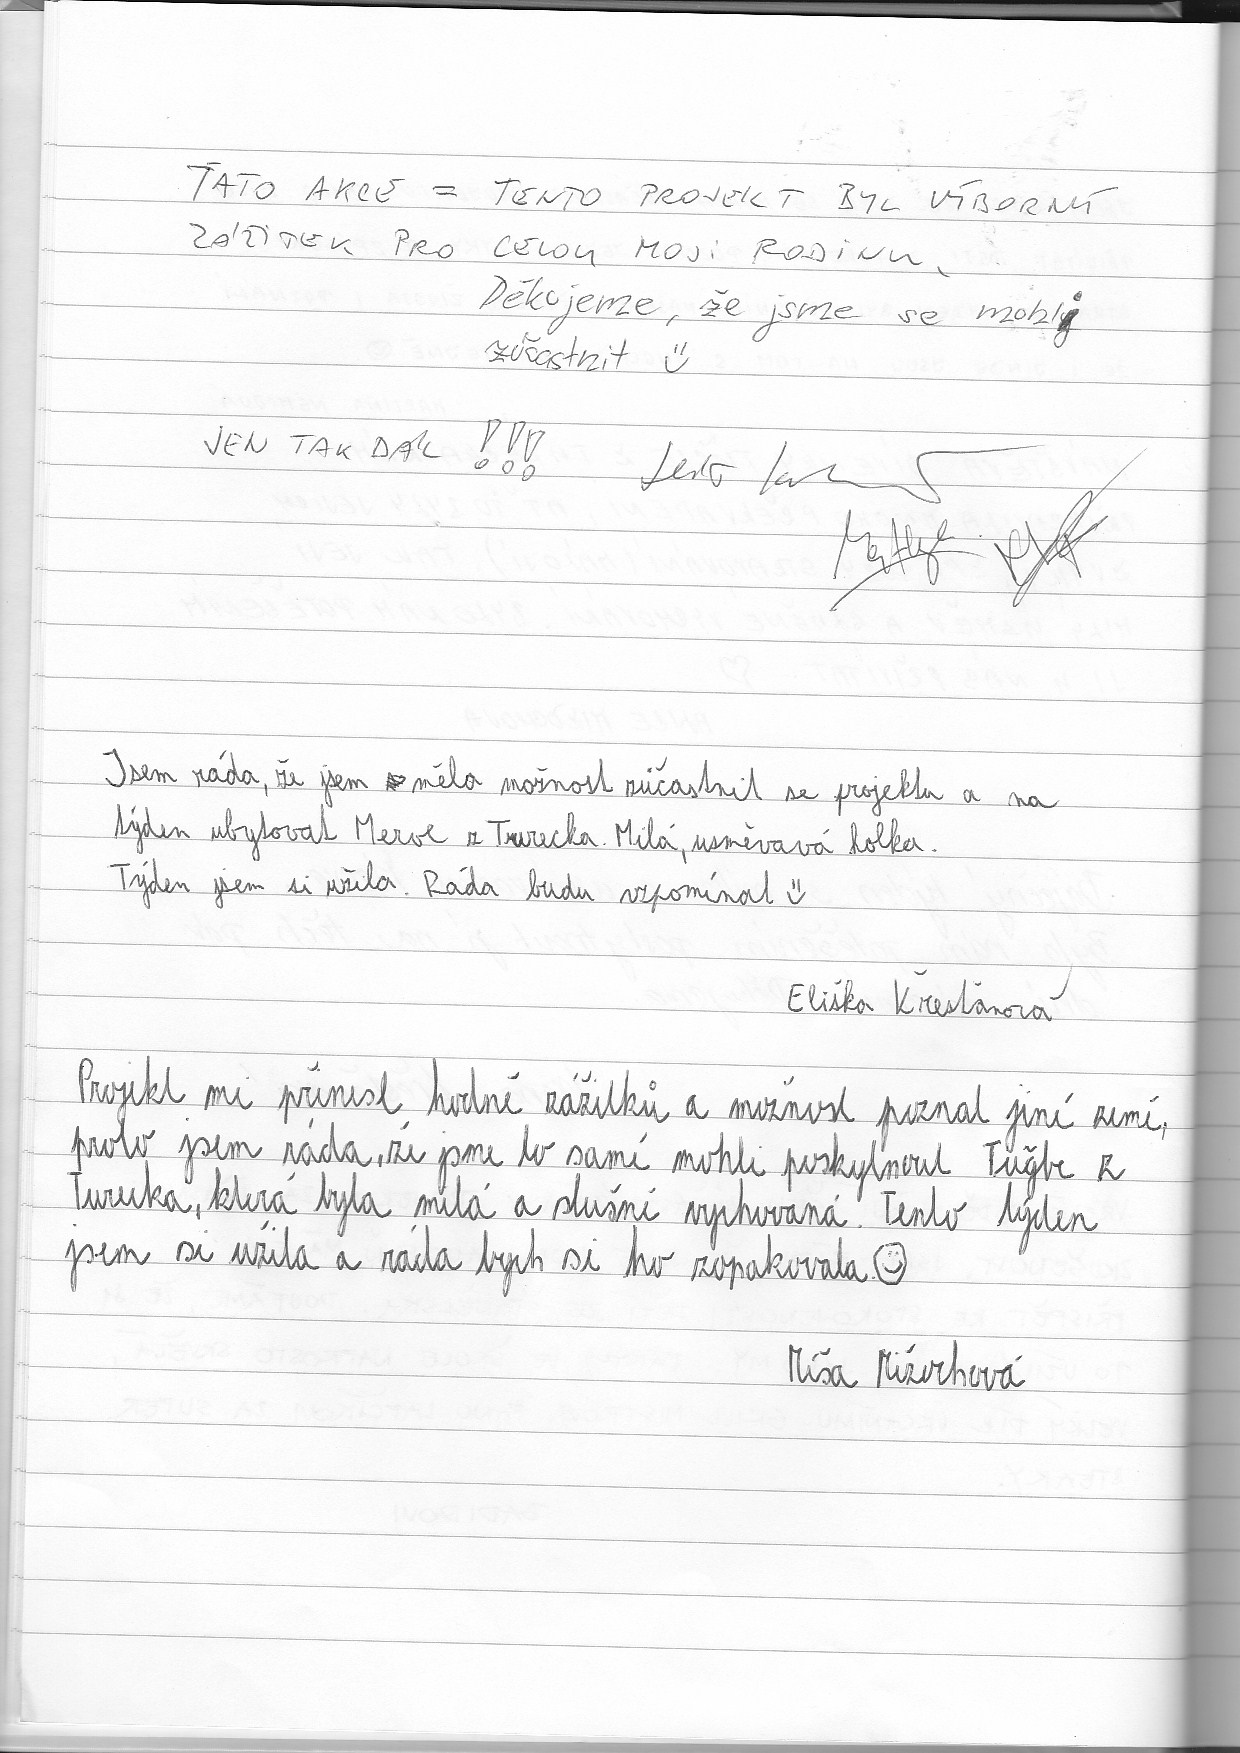 TATO AKCE = TENTO PROJEKT BYL VÝBORNÝ
ZÁŽITEK PRO CELOU MOJI RODINU.
Děkujeme, že jsme se mohli
zúčastnit :)
JEN TAK DÁL !!!
Jsem ráda, že jsem měla možnost zúčastnit se projektu a na
týden ubytovat Merve z Turecka. Milá, usměvavá holka.
Týden jsem si užila. Ráda budu vzpomínat :)
Eliška Křesťanová
Projekt mi přinesl hodně zážitků a možnost poznat jiné země,
proto jsem ráda, že jsme to samé mohli poskytnout Tuğbe z
Turecka, která byla milá a slušně vychovaná. Tento týden
jsem si užila a ráda bych si ho zopakovala. :)
Míša